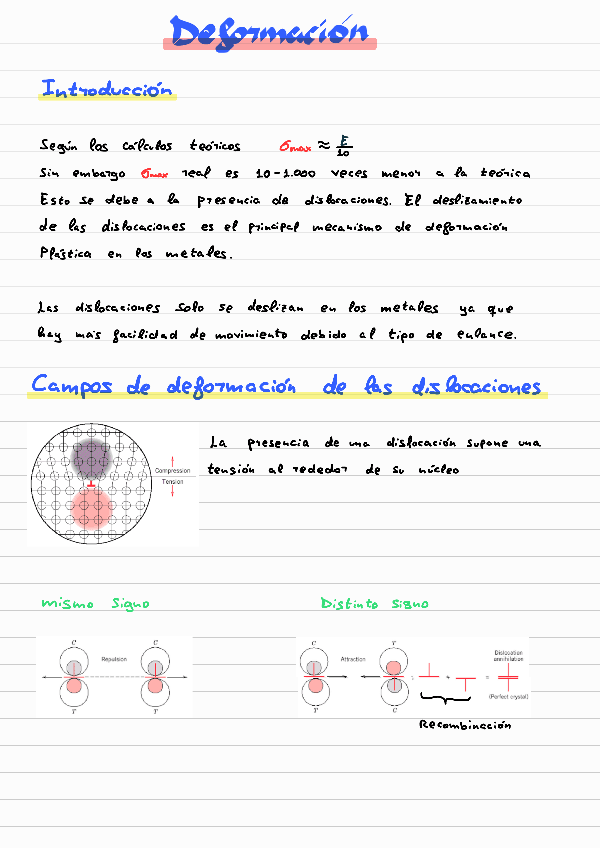 Deformación
Introducción
Según los cálculos teóricos σmax ≈ E/10
Sin embargo σmax real es 10-1.000 veces menor a la teórica
Esto se debe a la presencia de dislocaciones. El deslizamiento
de las dislocaciones es el principal mecanismo de deformación
Plástica en los metales.
Las dislocaciones solo se deslizan en los metales ya que
hay mas facilidad de movimiento debido al tipo de enlance.
Campos de deformación de las dislocaciones
La presencia de una dislocación supone una
tensión al rededor de su núcleo
Compression
Tension
mismo signo
Distinto signo
C C
Repulsion
r r
C r
Attraction
r C
+ =
Dislocation
annihilation
(Perfect crystal)
Recombinación